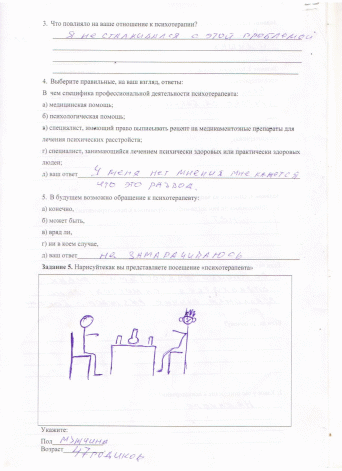 3. Что повлияло на ваше отношение к психотерапии?
Я не сталкивался с этой проблемой
4. Выберите правильные, на ваш взгляд, ответы:
В чем специфика профессиональной деятельности психотерапевта:
а) медицинская помощь;
б) психологическая помощь;
в) специалист, имеющий право выписывать рецепт на медикаментозные препараты для
лечения психических расстройств;
г) специалист, занимающийся лечением психически здоровых или практически здоровых
людей;
д) ваш ответ У меня нет мнения мне кажется
что это развод.
5. В будущем возможно обращение к психотерапевту:
а) конечно,
б) может быть,
в) вряд ли,
г) ни в коем случае,
д) ваш ответ не
Задание 5. Нарисуйтекак вы представляете посещение «психотерапевта»
Укажите:
Пол мужчина
Возраст 47 годиков